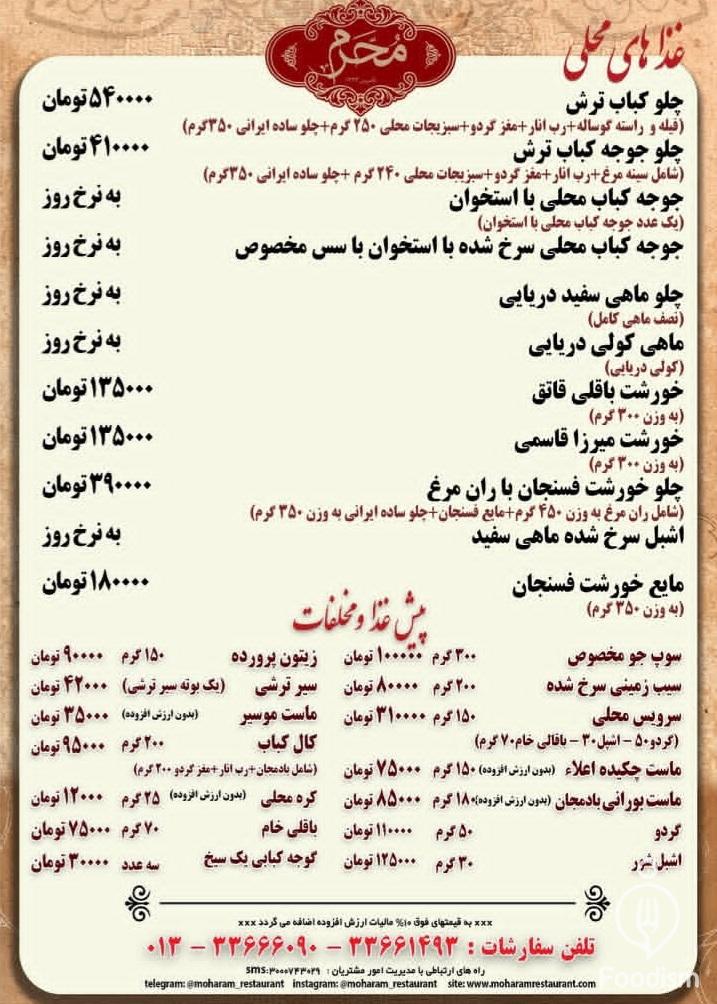 محرم
غذاهای محلی
چلو کباب ترش ۵۴۰۰۰۰ تومان
(فیله و راسته گوساله+رب انار+مغز گردو+سبزیجات محلی ۲۵۰ گرم+چلو ساده ایرانی ۳۵۰گرم)
چلو جوجه کباب ترش ۴۱۰۰۰۰ تومان
(شامل سینه مرغ+رب انار+مغز گردو+سبزیجات محلی ۲۴۰ گرم +چلو ساده ایرانی ۳۵۰گرم)
جوجه کباب محلی با استخوان به نرخ روز
(یک عدد جوجه کباب محلی با استخوان)
جوجه کباب محلی سرخ شده با استخوان با سس مخصوص به نرخ روز
چلو ماهی سفید دریایی به نرخ روز
(نصف ماهی کامل)
ماهی کولی دریایی به نرخ روز
(کولی دریایی)
خورشت باقلی قاتق ۱۳۵۰۰۰ تومان
(به وزن ۳۰۰ گرم)
خورشت میرزا قاسمی ۱۳۵۰۰۰ تومان
(به وزن ۳۰۰ گرم)
چلو خورشت فسنجان با ران مرغ ۳۹۰۰۰۰ تومان
(شامل ران مرغ به وزن ۴۵۰ گرم+مایع فسنجان+چلو ساده ایرانی به وزن ۳۵۰ گرم)
اشبل سرخ شده ماهی سفید به نرخ روز
مایع خورشت فسنجان ۱۸۰۰۰۰ تومان
(به وزن ۳۵۰ گرم)
پیش غذا و مخلفات
سوپ جو مخصوص ۳۰۰ گرم ۱۰۰۰۰۰ تومان
سیب زمینی سرخ شده ۲۰۰ گرم ۸۰۰۰۰ تومان
سرویس محلی ۱۵۰ گرم ۳۱۰۰۰۰ تومان
(گردو۵۰ - اشبل۳۰ - باقالی خام۷۰ گرم)
ماست چکیده اعلاء (بدون ارزش افزوده) ۱۵۰ گرم ۷۵۰۰۰ تومان
ماست بورانی بادمجان (بدون ارزش افزوده) ۱۸۰ گرم ۸۵۰۰۰ تومان
گردو ۵۰ گرم ۱۱۰۰۰۰ تومان
اشبل شور ۳۰ گرم ۱۲۵۰۰۰ تومان
زیتون پرورده ۱۵۰ گرم ۹۰۰۰۰ تومان
سیر ترشی (یک بوته سیر ترشی) ۴۲۰۰۰ تومان
ماست موسیر (بدون ارزش افزوده) ۳۵۰۰۰ تومان
کال کباب ۲۰۰ گرم ۹۵۰۰۰ تومان
(شامل بادمجان+رب انار+مغز گردو ۲۰۰ گرم)
کره محلی (بدون ارزش افزوده) ۲۵ گرم ۱۲۰۰۰ تومان
باقلی خام ۷۰ گرم ۷۵۰۰۰ تومان
گوجه کبابی یک سیخ سه عدد ۳۰۰۰۰ تومان
xxx به قیمتهای فوق ۱۰% مالیات ارزش افزوده اضافه می گردد xxx
تلفن سفارشات : ۳۳۶۶۱۴۹۳ - ۳۳۶۶۶۰۹۰ - ۰۱۳
راه های ارتباطی با مدیریت امور مشتریان : sms:۳۰۰۰۷۴۳۰۲۹
telegram: @moharam_restaurant instagram: @moharam_restaurant site: www.moharamrestaurant.com
Foodism